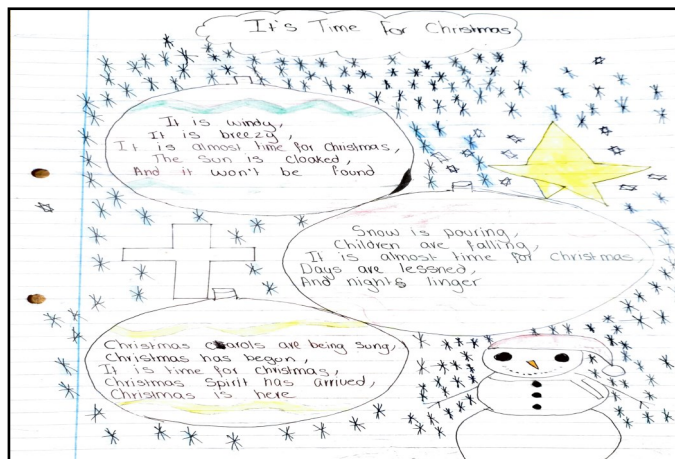 It's Time for Christmas
It is windy,
It is breezy,
It is almost time for Christmas,
The Sun is cloaked,
And it won't be found
Snow is pouring,
Children are falling,
It is almost time for christmas,
Days are lessned,
And nights linger
Christmas Carols are being sung,
Christmas has begun,
It is time for christmas,
Christmas Spirit has arrived,
Christmas is here